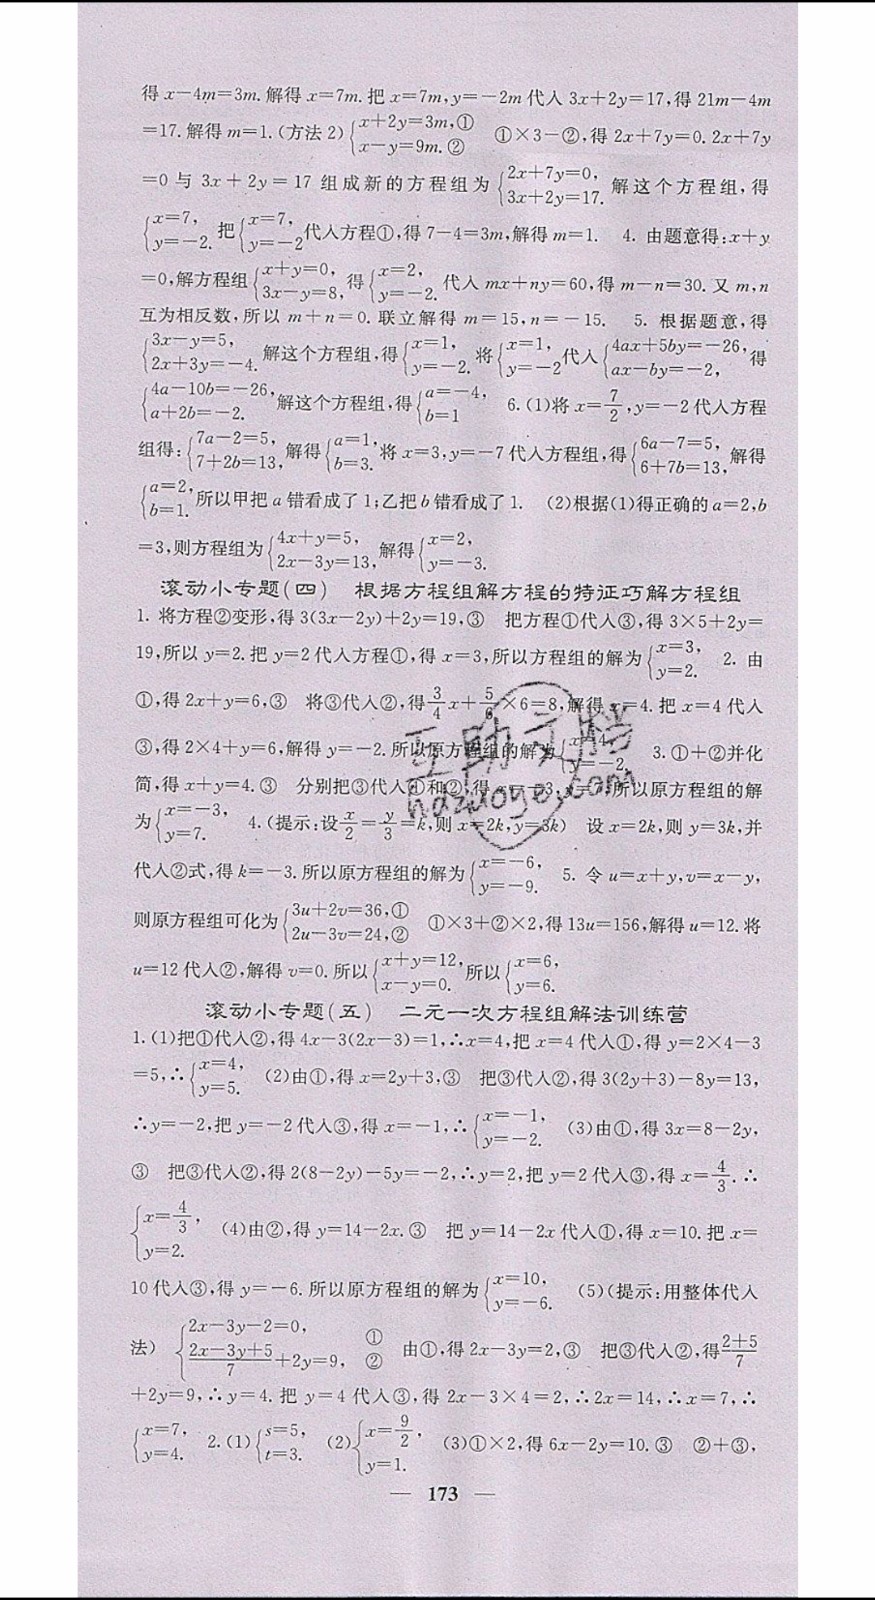 得 x－4m＝3m. 解得 x＝7m. 把 x＝7m, y＝－2m 代入 3x＋2y＝17, 得 21m－4m
＝17. 解得 m＝1. (方法 2) {x＋2y＝3m, ① x－y＝9m. ② ①×3－②, 得 2x＋7y＝0. 2x＋7y
＝0 与 3x＋2y＝17 组成新的方程组为 {2x＋7y＝0, 3x＋2y＝17. 解这个方程组, 得
{x＝7, y＝－2. 把 {x＝7, y＝－2 代入方程①, 得 7－4＝3m, 解得 m＝1. 4. 由题意得: x＋y
＝0, 解方程组 {x＋y＝0, 3x－y＝8, 得 {x＝2, y＝－2. 代入 mx＋ny＝60, 得 m－n＝30. 又 m, n
互为相反数, 所以 m＋n＝0. 联立解得 m＝15, n＝－15. 5. 根据题意, 得
{3x－y＝5, 2x＋3y＝－4. 解这个方程组, 得 {x＝1, y＝－2. 将 {x＝1, y＝－2 代入 {4ax＋5by＝－26, ax－by＝－2, 得
{4a－10b＝－26, a＋2b＝－2. 解这个方程组, 得 {a＝－4, b＝1 6. (1)将 x＝7/2, y＝－2 代入方程
组得: {7a－2＝5, 7＋2b＝13, 解得 {a＝1, b＝3. 将 x＝3, y＝－7 代入方程组, 得 {6a－7＝5, 6＋7b＝13, 解得
{a＝2, b＝1. 所以甲把 a 错看成了 1; 乙把 b 错看成了 1. (2)根据(1)得正确的 a＝2, b
＝3, 则方程组为 {4x＋y＝5, 2x－3y＝13, 解得 {x＝2, y＝－3.
滚动小专题(四) 根据方程组解方程的特征巧解方程组
1. 将方程②变形, 得 3(3x－2y)＋2y＝19, ③ 把方程①代入③, 得 3×5＋2y＝
19, 所以 y＝2. 把 y＝2 代入方程①, 得 x＝3, 所以方程组的解为 {x＝3, y＝2. 2. 由
①, 得 2x＋y＝6, ③ 将③代入②, 得 3/4 x＋5/6×6＝8, 解得 x＝4. 把 x＝4 代入
③, 得 2×4＋y＝6, 解得 y＝－2. 所以原方程组的解为 {x＝4, y＝－2. 3. ①＋②并化
简, 得 x＋y＝4. ③ 分别把③代入①和②, 得 所以原方程组的解
为 {x＝－3, y＝7. 4. (提示: 设 x/2＝y/3＝k, 则 x＝2k, y＝3k) 设 x＝2k, 则 y＝3k, 并
代入②式, 得 k＝－3. 所以原方程组的解为 {x＝－6, y＝－9. 5. 令 u＝x＋y, v＝x－y,
则原方程组可化为 {3u＋2v＝36, ① 2u－3v＝24, ② ①×3＋②×2, 得 13u＝156, 解得 u＝12. 将
u＝12 代入②, 解得 v＝0. 所以 {x＋y＝12, x－y＝0. 所以 {x＝6, y＝6.
滚动小专题(五) 二元一次方程组解法训练营
1. (1)把①代入②, 得 4x－3(2x－3)＝1, ∴x＝4, 把 x＝4 代入①, 得 y＝2×4－3
＝5, ∴{x＝4, y＝5. (2)由①, 得 x＝2y＋3, ③ 把③代入②, 得 3(2y＋3)－8y＝13,
∴y＝－2, 把 y＝－2 代入③, 得 x＝－1, ∴{x＝－1, y＝－2. (3)由①, 得 3x＝8－2y,
③ 把③代入②, 得 2(8－2y)－5y＝－2, ∴y＝2, 把 y＝2 代入③, 得 x＝4/3. ∴
{x＝4/3, y＝2. (4)由②, 得 y＝14－2x. ③ 把 y＝14－2x 代入①, 得 x＝10. 把 x＝
10 代入③, 得 y＝－6. 所以原方程组的解为 {x＝10, y＝－6. (5)(提示: 用整体代入
法) {2x－3y－2＝0, ① (2x－3y＋5)/7＋2y＝9, ② 由①, 得 2x－3y＝2, ③ 把③代入②, 得 (2＋5)/7
＋2y＝9, ∴y＝4. 把 y＝4 代入③, 得 2x－3×4＝2, ∴2x＝14, ∴x＝7, ∴
{x＝7, y＝4. 2. (1){s＝5, t＝3. (2){x＝9/2, y＝1. (3)①×2, 得 6x－2y＝10. ③ ②＋③,
— 173 —